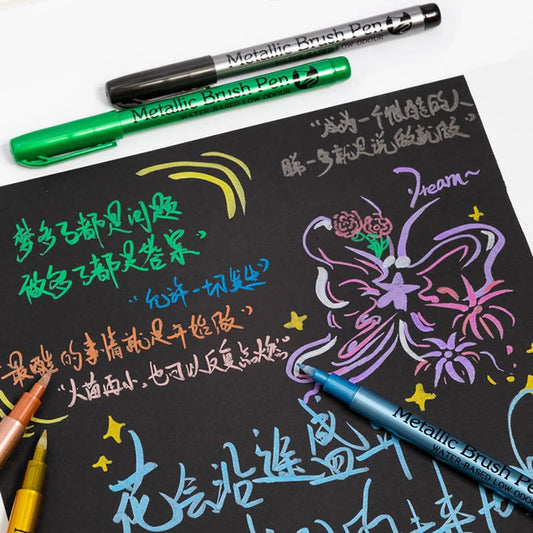 Metallic Brush Pen
WATER-BASED LOW ODOUR
Metallic Brush Pen
WATER-BASED LOW ODOUR
"成为一个很酷的人
第一步就是说做就做"
Dream~
梦多了都是问题
做多了都是答案"
"允许一切发生"
"最酷的事情就是开始做"
"火苗再小,也可以反复点燃"
Metallic Brush Pen
WATER-BASED LOW ODOUR
花会沿途盛开